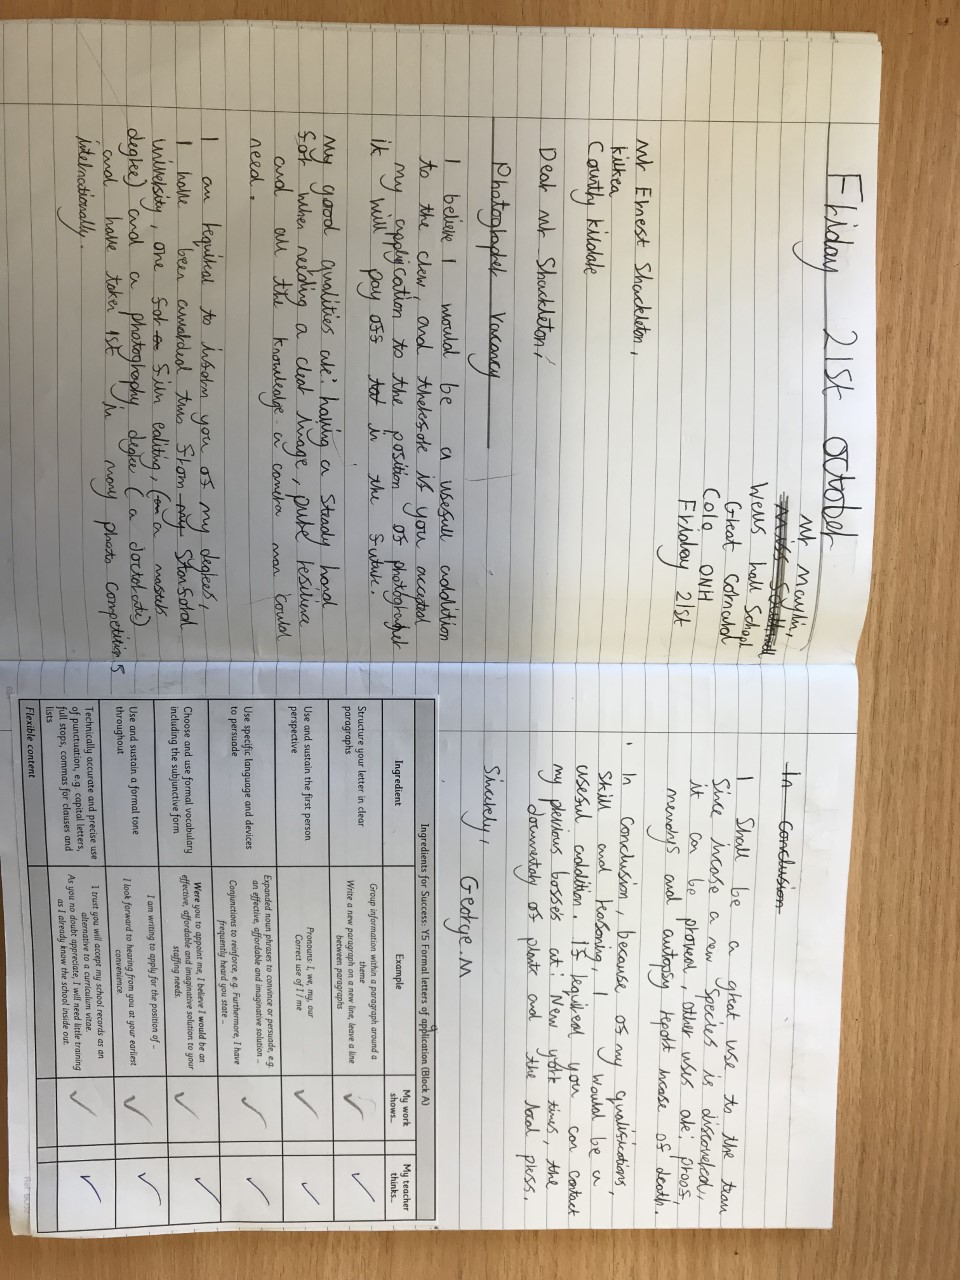 Friday 21st october
Mr Maylin,
Wells hall School
Great Cornard
Co10 ONH
Friday 21st
Mr Ernest Shackleton,
kilkea
County kildare
Dear Mr Shackleton,
Photographer Vacancy
I believe I would be a usefull addition
to the clew, and therefore if you accepted
my application to the position of photographer
it will pay off in the future.
My good qualities are: having a steady hand
for when needing a clear image, pure resilience
and all the knowledge a camera man could
need.
I am required to inform you of my degrees,
I have been awarded two from Stanford
university, one for film editing, (a masters
degree) and a photography degree (a doctorate)
and have taken 1st in many photo competitions
internationally.
In conclusion
I Shall be a great use to the team
Since incase a new Species is discovered,
it can be proved, other uses are; proof,
memorys and autopsy report incase of death.
In Conclusion, because of my qualifications,
skill and reasoning, I would be a
useful addition. If required you can contact
my previous bosses at: New york times, the
documentary of plants and the local press.
Sincerely,
George.M
Ingredients for Success: Y5 Formal letters of application (Block A)
Ingredient Example My work shows... My teacher thinks...
Structure your letter in clear paragraphs
Group information within a paragraph around a theme
Write a new paragraph on a new line, leave a line between paragraphs
Use and sustain the first person perspective
Pronouns: I, we, my, our
Correct use of I / me
Use specific language and devices to persuade
Expanded noun phrases to convince or persuade, e.g. an effective, affordable and imaginative solution ...
Conjunctions to reinforce, e.g. Furthermore, I have frequently heard you state ...
Choose and use formal vocabulary including the subjunctive form
Were you to appoint me, I believe I would be an effective, affordable and imaginative solution to your staffing needs.
Use and sustain a formal tone throughout
I am writing to apply for the position of ...
I look forward to hearing from you at your earliest convenience
Technically accurate and precise use of punctuation, e.g. capital letters, full stops, commas for clauses and lists
I trust you will accept my school records as an alternative to a curriculum vitae.
As you no doubt appreciate, I will need little training as I already know the school inside out.
Flexible content